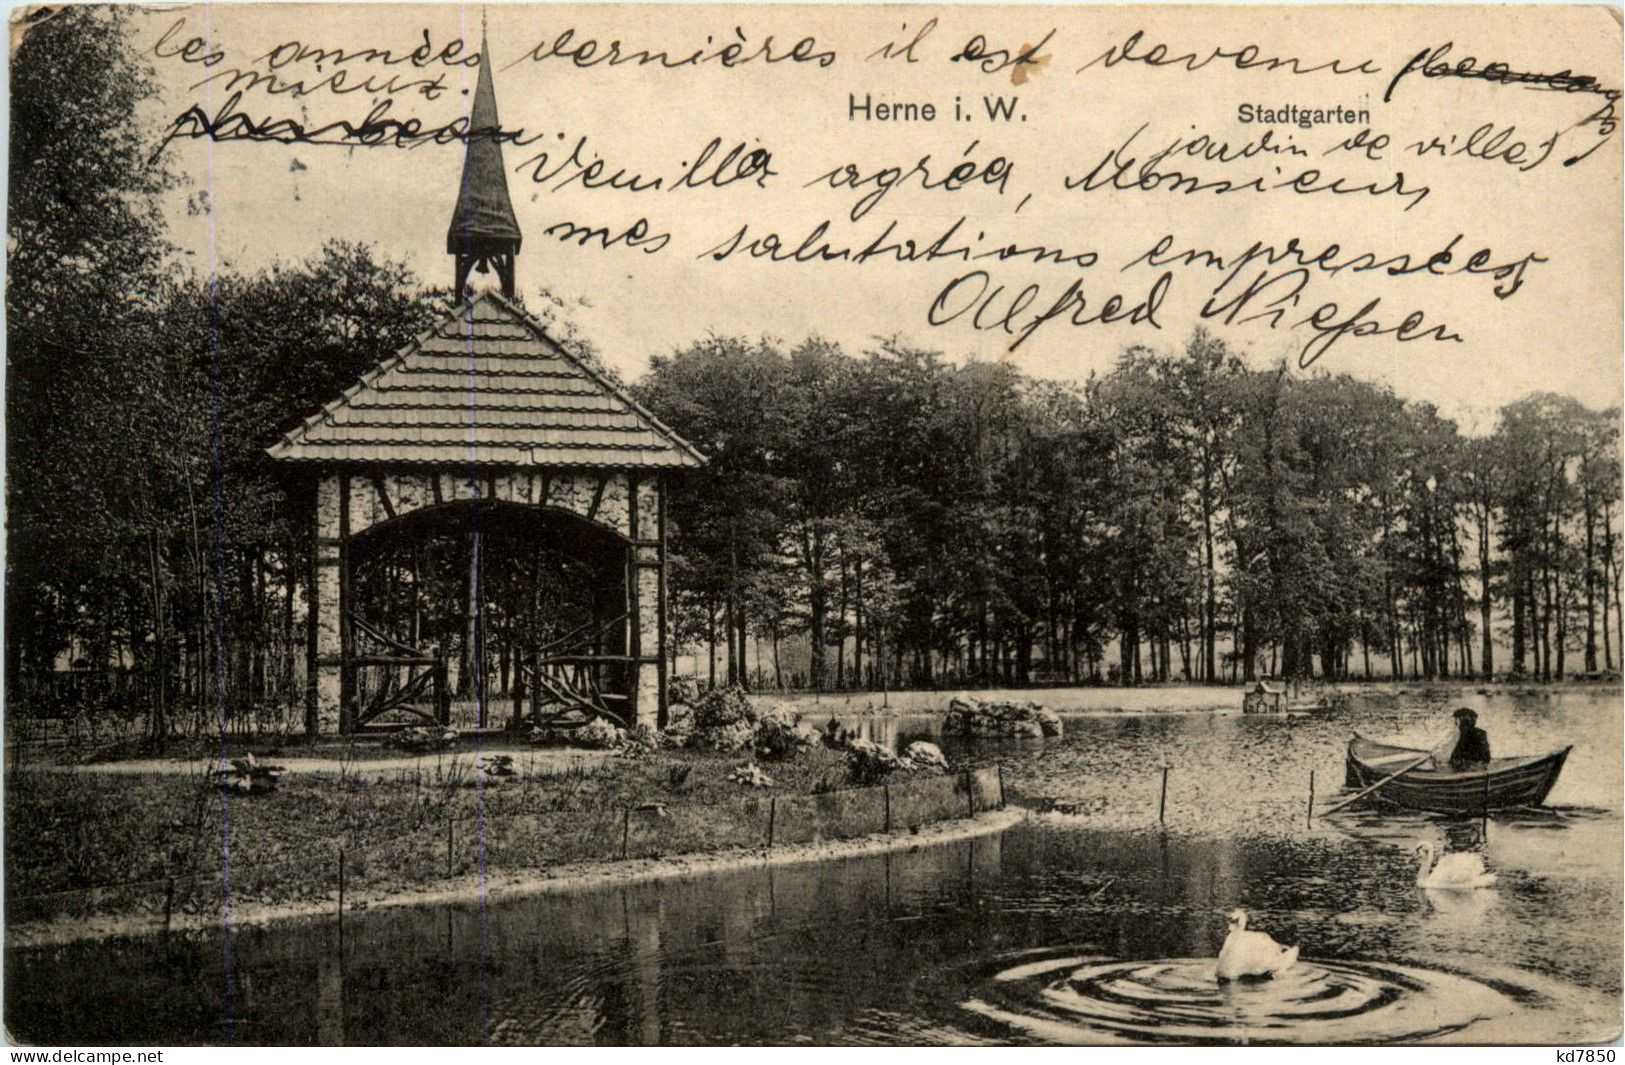 les années dernières il est devenu beaucoup
mieux.
plus beau.
Herne i. W.
Stadtgarten
(jardin de villes)
Veuillez agréer, Monsieur,
mes salutations empressées,
Alfred Nießen
delcampe.net
kd7850